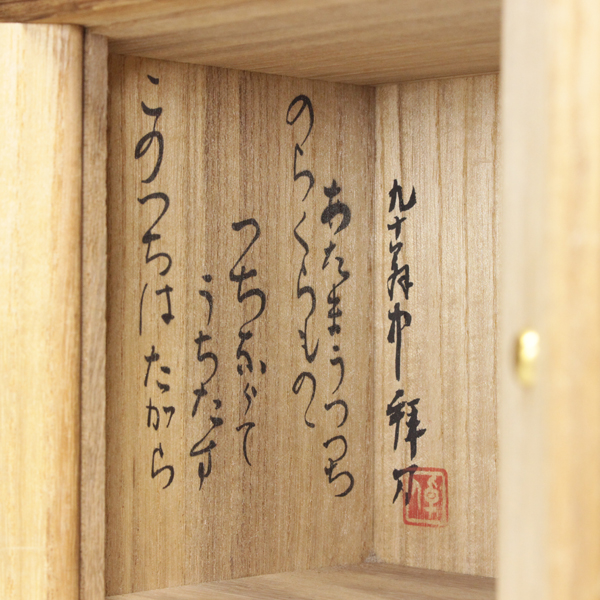 このつちは たから
うちたす
つちならて
のらくらものゝ
あたまうつつち
九十翁中 拜刀